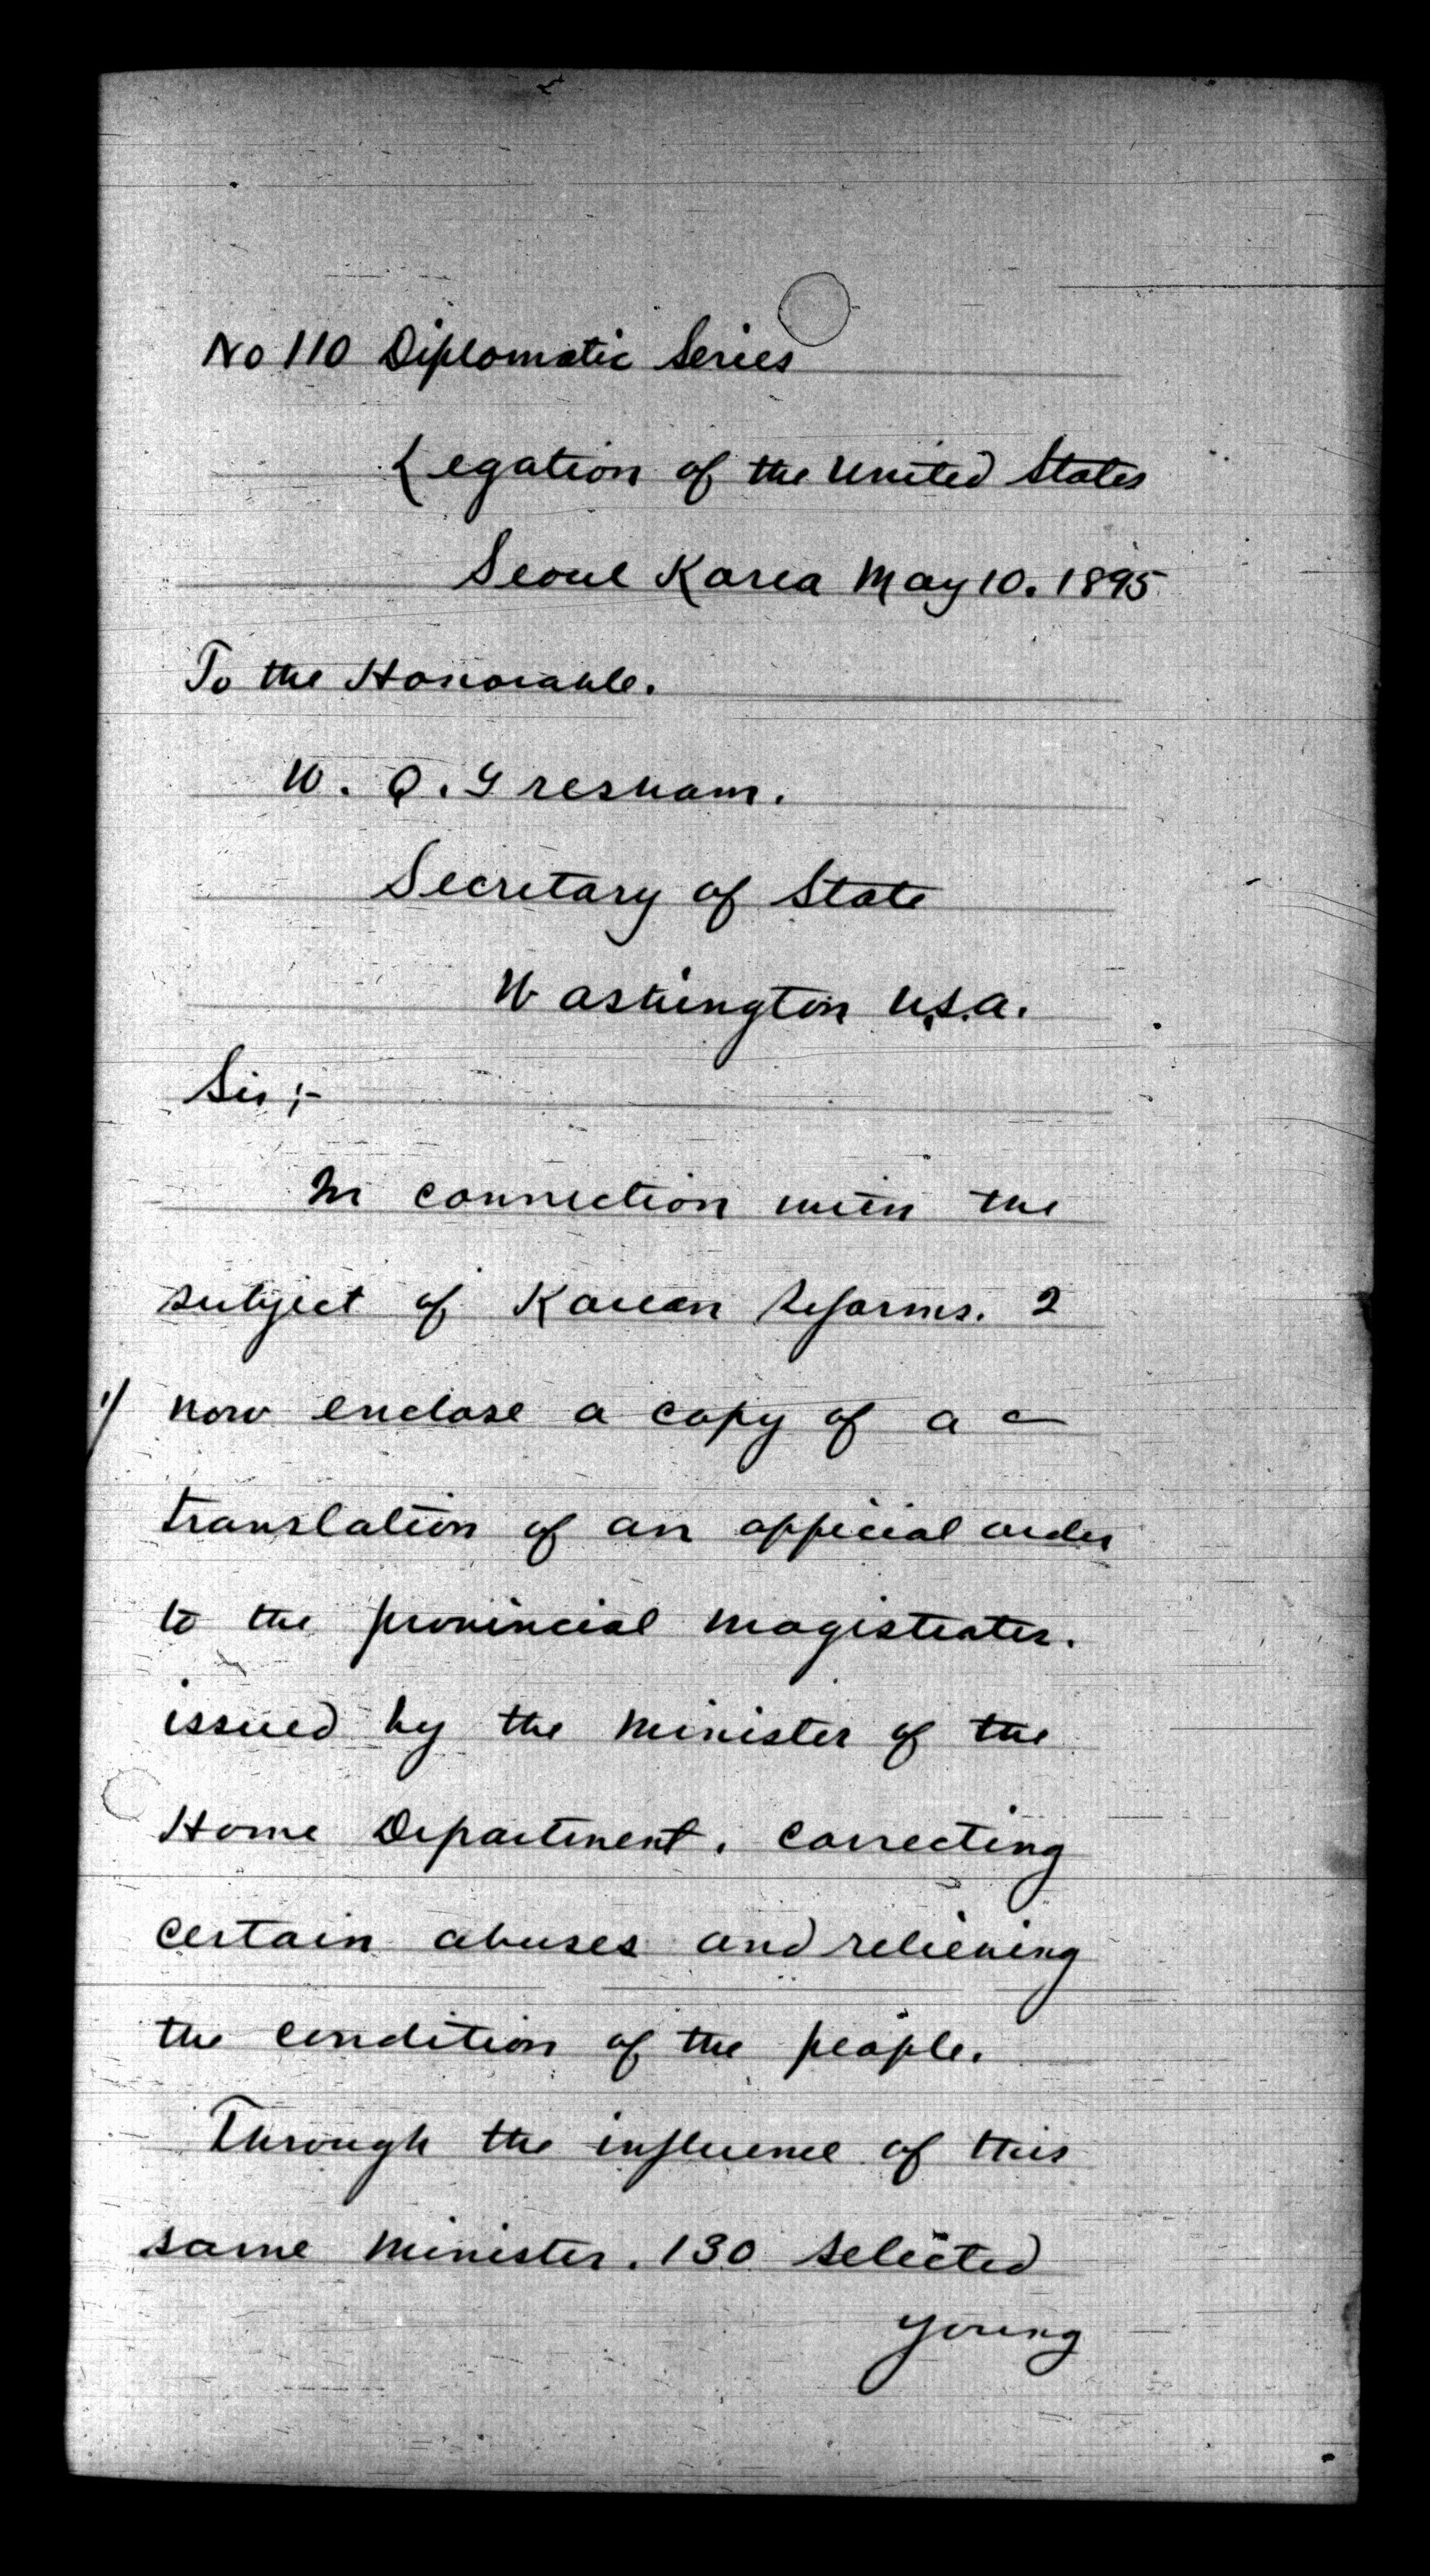 No 110 Diplomatic Series
Legation of the United States
Seoul Korea May 10. 1895
To the Honorable.
W. Q. Gresham.
Secretary of State
Washington U.S.A.
Sir;-
In connection with the
subject of Korean reforms. I
1/ now enclose a copy of a
translation of an official order
to the provincial magistrates.
issued by the Minister of the
Home Department. correcting
certain abuses and relieving
the condition of the people.
Through the influence of this
same Minister. 130 selected
young